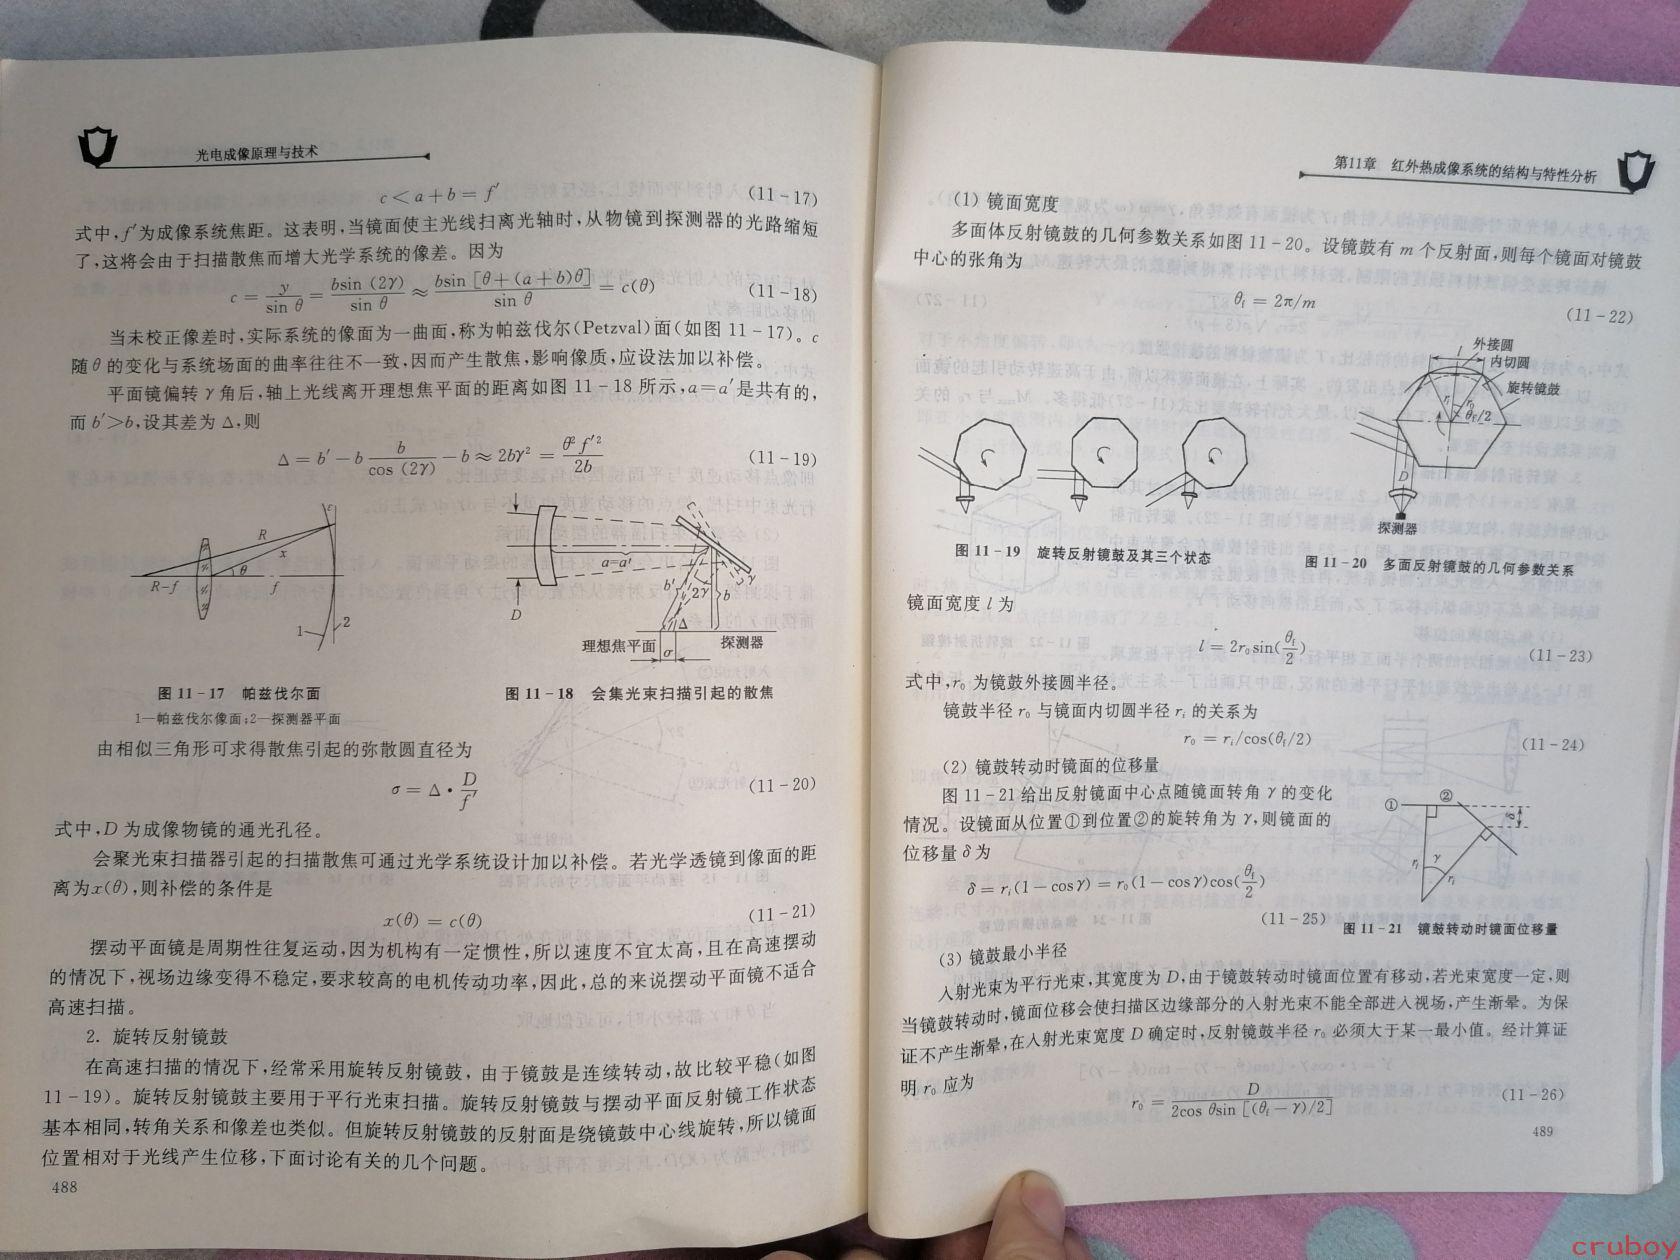 光电成像原理与技术
c < a + b = f′ (11-17)
式中,f′为成像系统焦距。这表明,当镜面使主光线扫离光轴时,从物镜到探测器的光路缩短
了,这将会由于扫描散焦而增大光学系统的像差。因为
c = y/sin θ = bsin (2γ)/sin θ ≈ bsin [θ+(a+b)θ]/sin θ = c(θ) (11-18)
当未校正像差时,实际系统的像面为一曲面,称为帕兹伐尔(Petzval)面(如图 11-17)。c
随 θ 的变化与系统场面的曲率往往不一致,因而产生散焦,影响像质,应设法加以补偿。
平面镜偏转 γ 角后,轴上光线离开理想焦平面的距离如图 11-18 所示,a=a′是共有的,
而 b′>b,设其差为 Δ,则
Δ = b′ - b b/cos (2γ) - b ≈ 2bγ² = θ² f′²/2b (11-19)
R
x
ε
θ
R-f
f
1
2
a=a′
b′
2γ
γ
b
D
Δ
理想焦平面
σ
探测器
图 11-17 帕兹伐尔面
1—帕兹伐尔像面;2—探测器平面
图 11-18 会集光束扫描引起的散焦
由相似三角形可求得散焦引起的弥散圆直径为
σ = Δ · D/f′ (11-20)
式中,D 为成像物镜的通光孔径。
会聚光束扫描器引起的扫描散焦可通过光学系统设计加以补偿。若光学透镜到像面的距
离为x(θ),则补偿的条件是
x(θ) = c(θ) (11-21)
摆动平面镜是周期性往复运动,因为机构有一定惯性,所以速度不宜太高,且在高速摆动
的情况下,视场边缘变得不稳定,要求较高的电机传动功率,因此,总的来说摆动平面镜不适合
高速扫描。
2. 旋转反射镜鼓
在高速扫描的情况下,经常采用旋转反射镜鼓,由于镜鼓是连续转动,故比较平稳(如图
11-19)。旋转反射镜鼓主要用于平行光束扫描。旋转反射镜鼓与摆动平面反射镜工作状态
基本相同,转角关系和像差也类似。但旋转反射镜鼓的反射面是绕镜鼓中心线旋转,所以镜面
位置相对于光线产生位移,下面讨论有关的几个问题。
488
第11章 红外热成像系统的结构与特性分析
(1) 镜面宽度
多面体反射镜鼓的几何参数关系如图 11-20。设镜鼓有 m 个反射面,则每个镜面对镜鼓
中心的张角为
θf = 2π/m (11-22)
l
外接圆
内切圆
旋转镜鼓
ri
r0
θf/2
D
探测器
图 11-19 旋转反射镜鼓及其三个状态
图 11-20 多面反射镜鼓的几何参数关系
镜面宽度 l 为
l = 2r0 sin(θf/2) (11-23)
式中,r0 为镜鼓外接圆半径。
镜鼓半径 r0 与镜面内切圆半径 ri 的关系为
r0 = ri/cos(θf/2) (11-24)
(2) 镜鼓转动时镜面的位移量
图 11-21 给出反射镜面中心点随镜面转角 γ 的变化
情况。设镜面从位置①到位置②的旋转角为 γ,则镜面的
位移量 δ 为
δ = ri(1-cosγ) = r0(1-cosγ)cos(θf/2)
(11-25)
①
②
δ
ri
γ
ri
图 11-21 镜鼓转动时镜面位移量
(3) 镜鼓最小半径
入射光束为平行光束,其宽度为 D,由于镜鼓转动时镜面位置有移动,若光束宽度一定,则
当镜鼓转动时,镜面位移会使扫描区边缘部分的入射光束不能全部进入视场,产生渐晕。为保
证不产生渐晕,在入射光束宽度 D 确定时,反射镜鼓半径 r0 必须大于某一最小值。经计算证
明 r0 应为
r0 = D/2cos θsin [(θf-γ)/2] (11-26)
489
cruboy